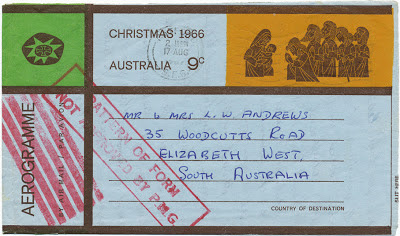 CHRISTMAS 1966
AUSTRALIA 9c
2-PM
17 AUG
AEROGRAMME
BY AIR MAIL / PAR AVION
PATTERN OF FORM
NOT APPROVED BY P.M.G.
MR & MRS L.W. ANDREWS
35 WOODCUTTS ROAD
ELIZABETH WEST,
SOUTH AUSTRALIA
COUNTRY OF DESTINATION
SLIT HERE